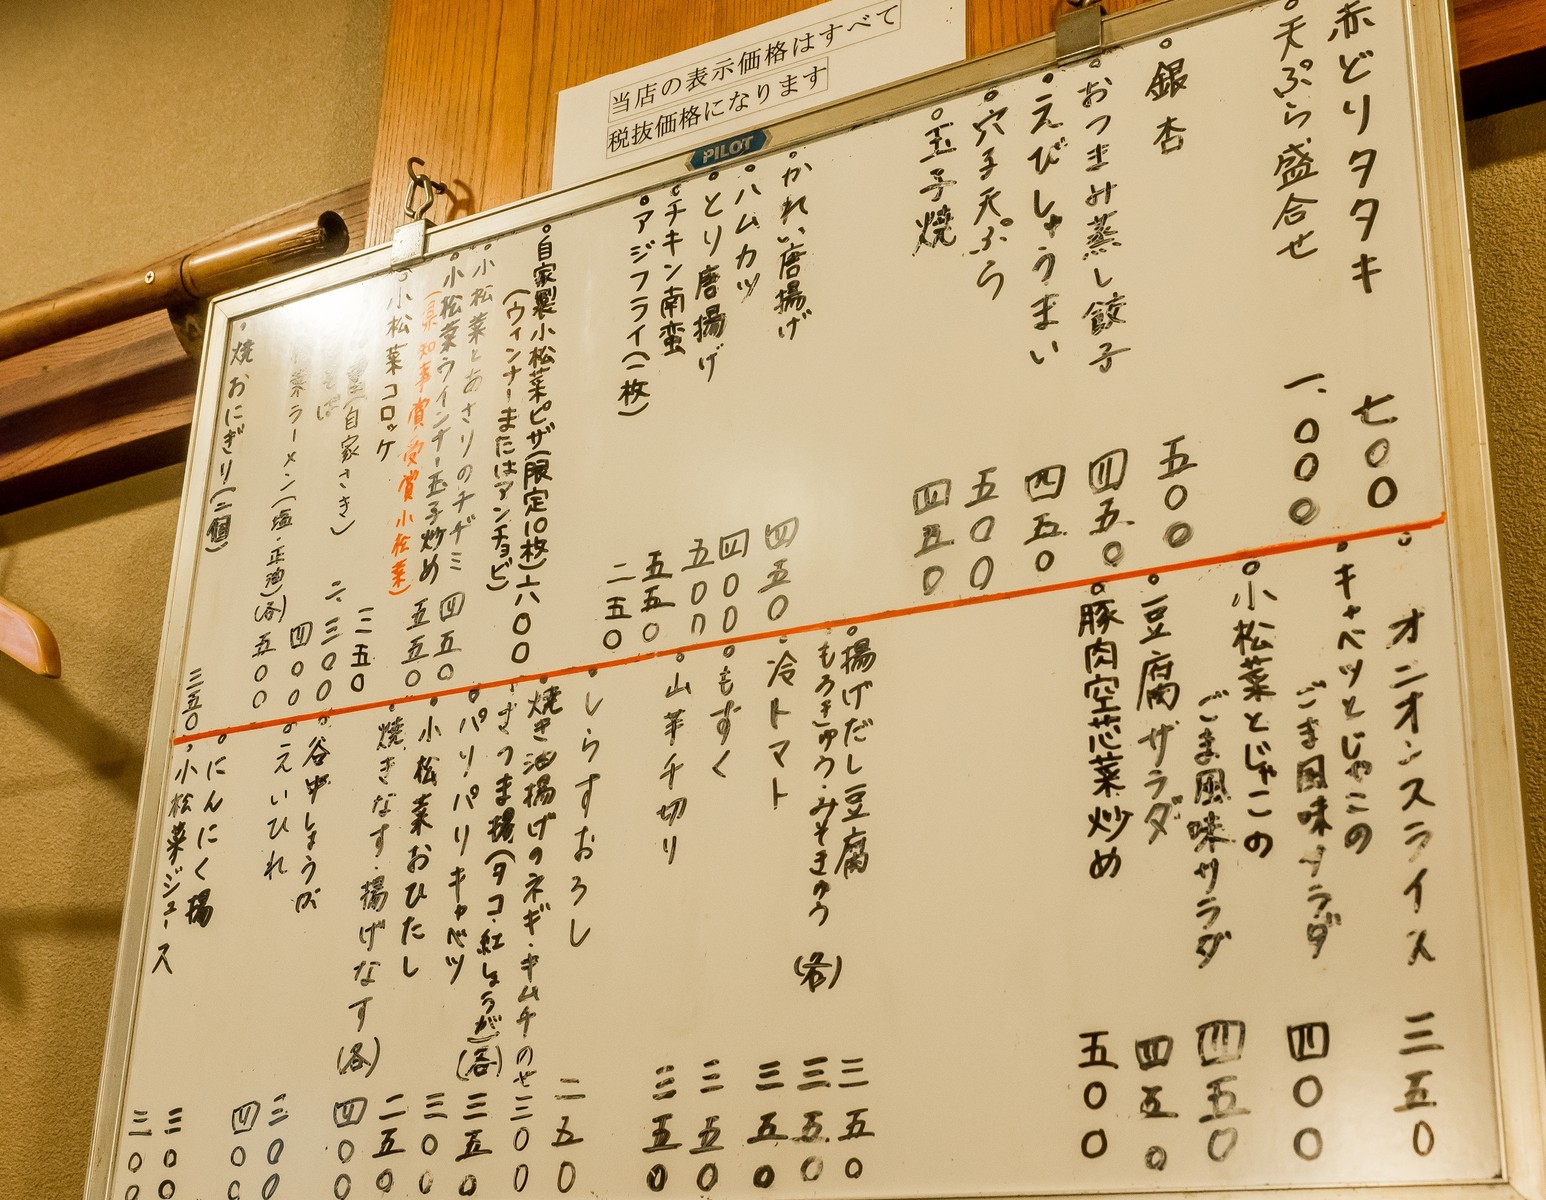 当店の表示価格はすべて
税抜価格になります
PILOT
赤どりタタキ 七〇〇
天ぷら盛合せ 一、〇〇〇
銀杏 五〇〇
おつまみ蒸し餃子 四五〇
えびしゅうまい 四五〇
穴子天ぷら 五〇〇
玉子焼 四五〇
かれい唐揚げ 四五〇
ハムカツ 四〇〇
とり唐揚げ 五〇〇
チキン南蛮 五五〇
アジフライ(一枚) 二五〇
自家製小松菜ピザ(限定10枚) 六〇〇
(ウィンナーまたはアンチョビ)
小松菜とあさりのチヂミ 四五〇
小松菜ウインナー玉子炒め 五五〇
(県知事賞受賞小松菜)
小松菜コロッケ
(自家さき) 二、三〇〇
菜ラーメン(塩・正油)(各) 五〇〇
焼おにぎり(二個) 三五〇
オニオンスライス 三五〇
キャベツとじゃこの
ごま風味サラダ 四〇〇
小松菜とじゃこの
ごま風味サラダ 四五〇
豆腐サラダ 四五〇
豚肉空芯菜炒め 五〇〇
揚げだし豆腐 三五〇
もろきゅう・みそきゅう(各) 三五〇
冷トマト 三五〇
もずく 三五〇
山芋千切り 三五〇
しらすおろし 二五〇
焼き油揚げのネギ・キムチのせ 三〇〇
さつま揚(タコ・紅しょうが)(各) 三五〇
パリパリキャベツ 三〇〇
小松菜おひたし 二五〇
焼きなす・揚げなす(各) 四〇〇
谷中しょうが 三〇〇
えいひれ 四〇〇
にんにく揚 三〇〇
小松菜ジュース 三〇〇